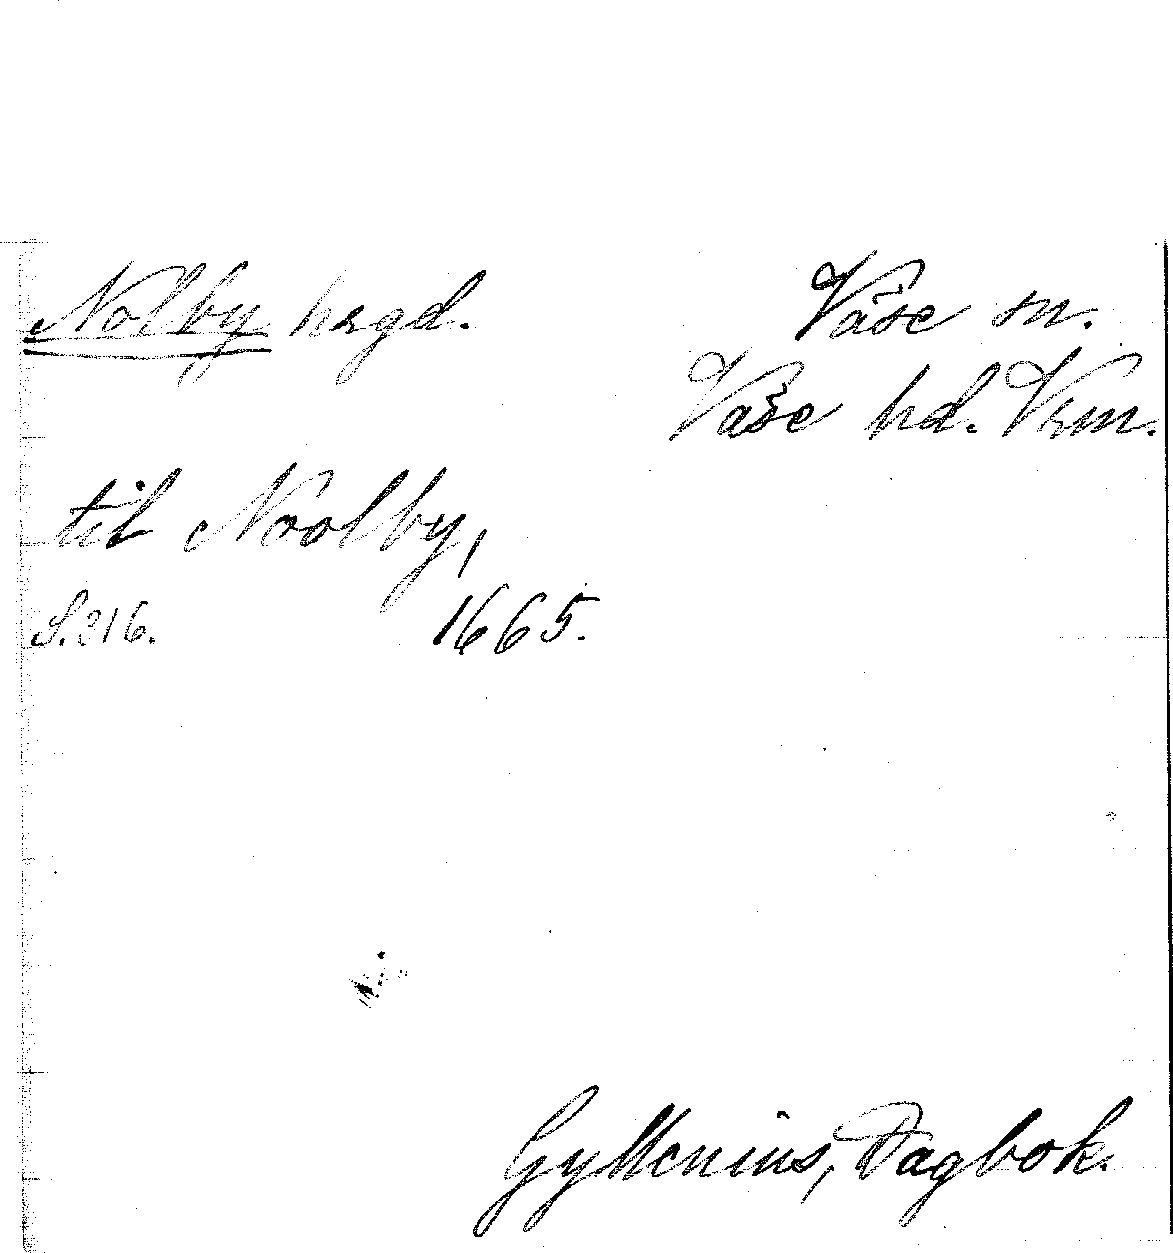 Nolby hrgd.
Väse sn.
Väse hd. Vrm.
til Noolby,
S. 216. 1665.
Gyllenius, Dagbok.